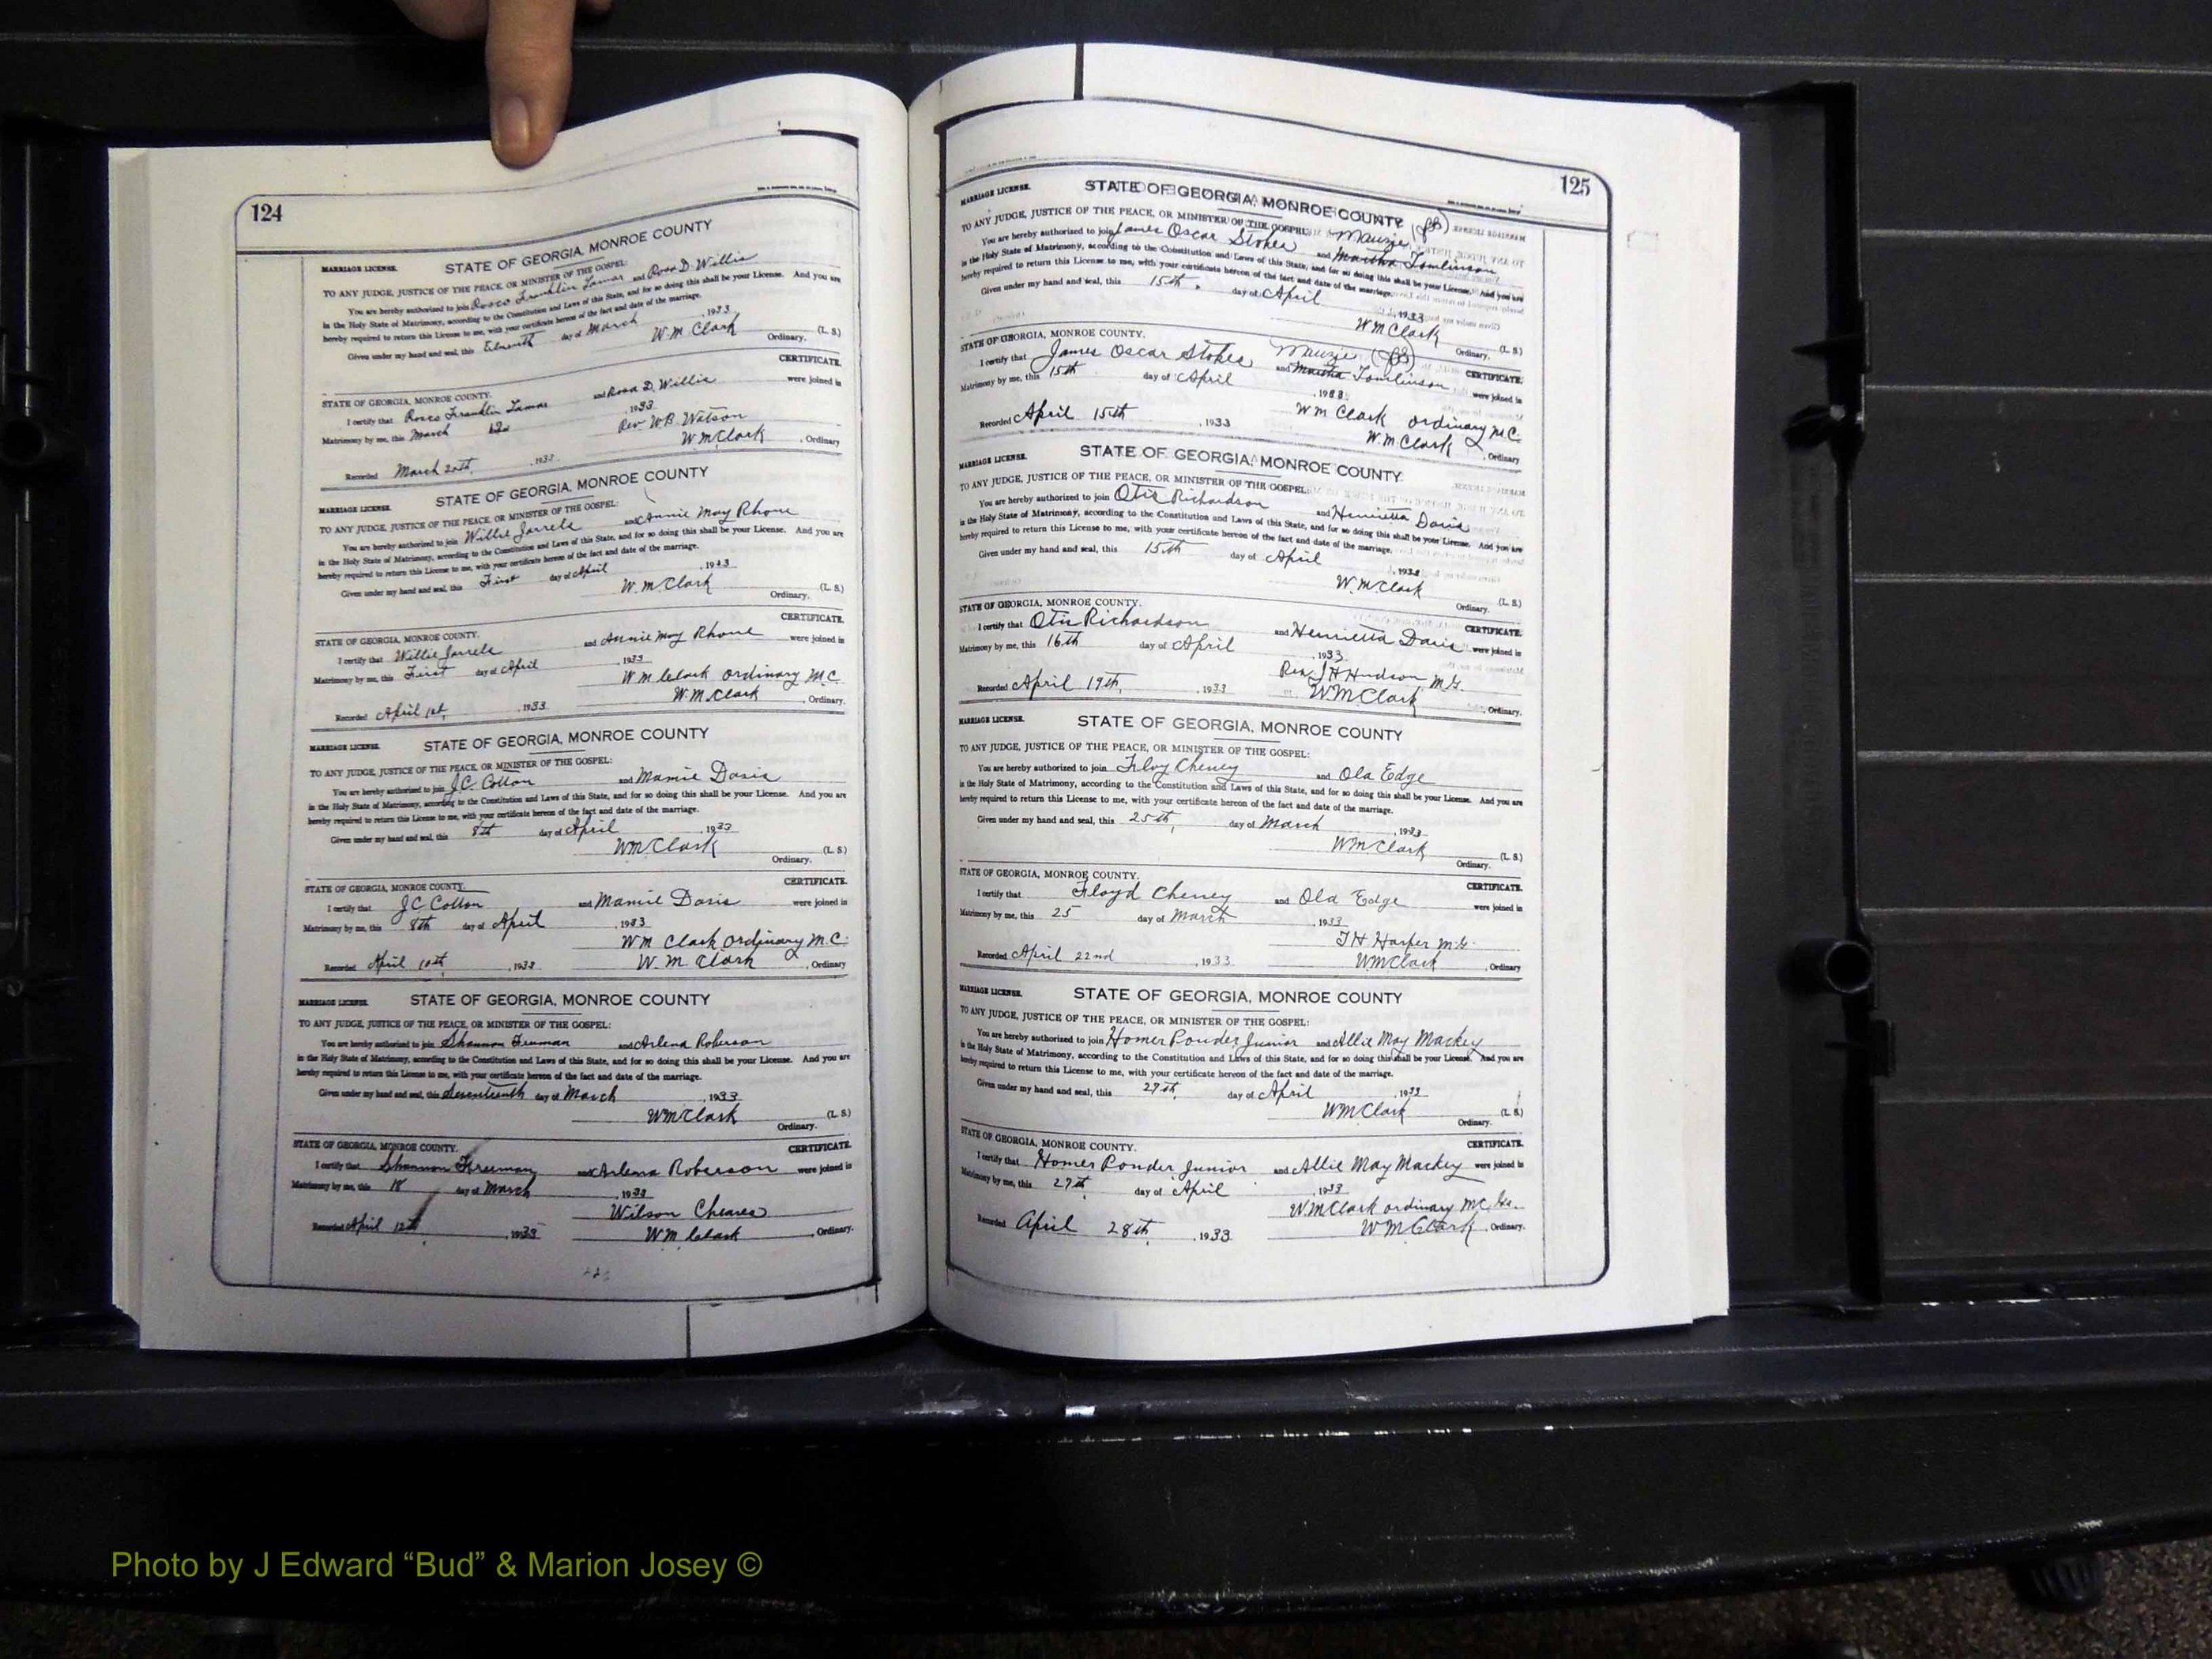 124
MARRIAGE LICENSE. STATE OF GEORGIA, MONROE COUNTY
TO ANY JUDGE, JUSTICE OF THE PEACE, OR MINISTER OF THE GOSPEL:
You are hereby authorized to join Rosco Franklin Lamar and Rosa D. Willis
in the Holy State of Matrimony, according to the Constitution and Laws of this State, and for so doing this shall be your License. And you are
hereby required to return this License to me, with your certificate hereon of the fact and date of the marriage.
Given under my hand and seal, this Eleventh day of March, 1933
W.M. Clark (L. S.)
Ordinary.
CERTIFICATE.
STATE OF GEORGIA, MONROE COUNTY.
I certify that Rosco Franklin Lamar and Rosa D. Willis were joined in
Matrimony by me, this March 12, 1933
Rev. W.B. Watson
W.M. Clark, Ordinary
Recorded March 20th, 1933
MARRIAGE LICENSE. STATE OF GEORGIA, MONROE COUNTY
TO ANY JUDGE, JUSTICE OF THE PEACE, OR MINISTER OF THE GOSPEL:
You are hereby authorized to join Willie Jarrels and Annie May Rhone
in the Holy State of Matrimony, according to the Constitution and Laws of this State, and for so doing this shall be your License. And you are
hereby required to return this License to me, with your certificate hereon of the fact and date of the marriage.
Given under my hand and seal, this First day of April, 1933
W.M. Clark (L. S.)
Ordinary.
CERTIFICATE.
STATE OF GEORGIA, MONROE COUNTY.
I certify that Willie Jarrels and Annie May Rhone were joined in
Matrimony by me, this First day of April, 1933
W M Clark ordinary M.C.
W.M. Clark, Ordinary.
Recorded April 1st, 1933
MARRIAGE LICENSE. STATE OF GEORGIA, MONROE COUNTY
TO ANY JUDGE, JUSTICE OF THE PEACE, OR MINISTER OF THE GOSPEL:
You are hereby authorized to join J.C. Colton and Mamie Davis
in the Holy State of Matrimony, according to the Constitution and Laws of this State, and for so doing this shall be your License. And you are
hereby required to return this License to me, with your certificate hereon of the fact and date of the marriage.
Given under my hand and seal, this 8th day of April, 1933
W.M. Clark (L. S.)
Ordinary.
CERTIFICATE.
STATE OF GEORGIA, MONROE COUNTY.
I certify that J C Colton and Mamie Davis were joined in
Matrimony by me, this 8th day of April, 1933
W M Clark ordinary M.C.
Recorded April 10th, 1933 W. M Clark, Ordinary
MARRIAGE LICENSE. STATE OF GEORGIA, MONROE COUNTY
TO ANY JUDGE, JUSTICE OF THE PEACE, OR MINISTER OF THE GOSPEL:
You are hereby authorized to join Shannon Freeman and Arlena Roberson
in the Holy State of Matrimony, according to the Constitution and Laws of this State, and for so doing this shall be your License. And you are
hereby required to return this License to me, with your certificate hereon of the fact and date of the marriage.
Given under my hand and seal, this Seventeenth day of March, 1933
W M Clark (L. S.)
Ordinary.
CERTIFICATE.
STATE OF GEORGIA, MONROE COUNTY.
I certify that Shannon Freeman and Arlena Roberson were joined in
Matrimony by me, this 18 day of March, 1933
Wilson Cheares
Recorded April 12th, 1933 W M Clark, Ordinary.
125
MARRIAGE LICENSE. STATE OF GEORGIA, MONROE COUNTY
TO ANY JUDGE, JUSTICE OF THE PEACE, OR MINISTER OF THE GOSPEL: Mauzie
You are hereby authorized to join James Oscar Stokes and Martha Tomlinson
in the Holy State of Matrimony, according to the Constitution and Laws of this State, and for so doing this shall be your License. And you are
hereby required to return this License to me, with your certificate hereon of the fact and date of the marriage.
Given under my hand and seal, this 15th. day of April, 1933
W M Clark (L. S.)
Ordinary.
CERTIFICATE.
STATE OF GEORGIA, MONROE COUNTY. Mauzie
I certify that James Oscar Stokes and Martha Tomlinson were joined in
Matrimony by me, this 15th day of April, 1933.
W M Clark ordinary M.C.
Recorded April 15th, 1933 W. M. Clark, Ordinary
MARRIAGE LICENSE. STATE OF GEORGIA, MONROE COUNTY
TO ANY JUDGE, JUSTICE OF THE PEACE, OR MINISTER OF THE GOSPEL:
You are hereby authorized to join Otis Richardson and Henrietta Davis
in the Holy State of Matrimony, according to the Constitution and Laws of this State, and for so doing this shall be your License. And you are
hereby required to return this License to me, with your certificate hereon of the fact and date of the marriage.
Given under my hand and seal, this 15th day of April, 1933
W. M. Clark (L. S.)
Ordinary.
CERTIFICATE.
STATE OF GEORGIA, MONROE COUNTY.
I certify that Otis Richardson and Henrietta Davis were joined in
Matrimony by me, this 16th day of April, 1933.
Rev. J H Hudson, M.G.
Recorded April 19th, 1933 W M Clark, Ordinary.
MARRIAGE LICENSE. STATE OF GEORGIA, MONROE COUNTY
TO ANY JUDGE, JUSTICE OF THE PEACE, OR MINISTER OF THE GOSPEL:
You are hereby authorized to join Floy Cheney and Ola Edge
in the Holy State of Matrimony, according to the Constitution and Laws of this State, and for so doing this shall be your License. And you are
hereby required to return this License to me, with your certificate hereon of the fact and date of the marriage.
Given under my hand and seal, this 25th, day of March, 1933
W M Clark (L. S.)
Ordinary.
STATE OF GEORGIA, MONROE COUNTY. CERTIFICATE.
I certify that Floyd Cheney and Ola Edge were joined in
Matrimony by me, this 25 day of March, 1933
J H Harper M.G.
Recorded April 22nd, 1933 W M Clark, Ordinary
MARRIAGE LICENSE. STATE OF GEORGIA, MONROE COUNTY
TO ANY JUDGE, JUSTICE OF THE PEACE, OR MINISTER OF THE GOSPEL:
You are hereby authorized to join Homer Ponder Junior and Allie May Mackey
in the Holy State of Matrimony, according to the Constitution and Laws of this State, and for so doing this shall be your License. And you are
hereby required to return this License to me, with your certificate hereon of the fact and date of the marriage.
Given under my hand and seal, this 27th, day of April, 1933
W M Clark (L. S.)
Ordinary.
STATE OF GEORGIA, MONROE COUNTY. CERTIFICATE.
I certify that Homer Ponder Junior and Allie May Mackey were joined in
Matrimony by me, this 27th day of April, 1933
W. M Clark ordinary M.C. Ga.
Recorded April 28th, 1933 W M Clark, Ordinary.
Photo by J Edward “Bud” & Marion Josey ©